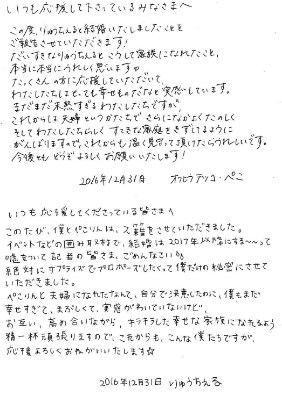 いつも応援して下さっているみなさまへ
この度、りゅうちぇると結婚いたしましたことを
ご報告させていただきます！
だいすきなりゅうちぇると こうして家族になれたこと、
本当に本当にうれしく思います♡
たくさんの方に応援していただいて、
わたしたちはとっても幸せものだなと実感しています。
まだまだ未熟すぎるわたしたちですが、
これからは夫婦というかたちで さらになかよくたのしく
そしてわたしたちらしく すてきな家庭をきずけるように
がんばりますので、これからも温く見守って頂けたらうれしいです。
今後ともどうぞよろしくお願いいたします！
2016年12月31日 オクヒラテツコ・ぺこ
いつも応援してくださっている皆さまへ
このたび、僕とぺこりんは、入籍をさせていただきました。
イベントなどの囲み取材で、結婚は2017年以降にする〜〜って
嘘をついて記者の皆さま、ごめんなさい。
絶対にサプライズでプロポーズしたくって僕だけの秘密にさせて
いただきました。
ぺこりんと夫婦になれたなんて、自分で決意したのに、僕もまだ
幸せすぎて、まぶしくて、実感がわいていないけど、
お互い、高め合いながら、キラキラした幸せな家族になれるよう
精一杯頑張りますので、これからも、こんな僕たちですが、
応援よろしくおねがいいたします☆
2016年12月31日 りゅうちぇる